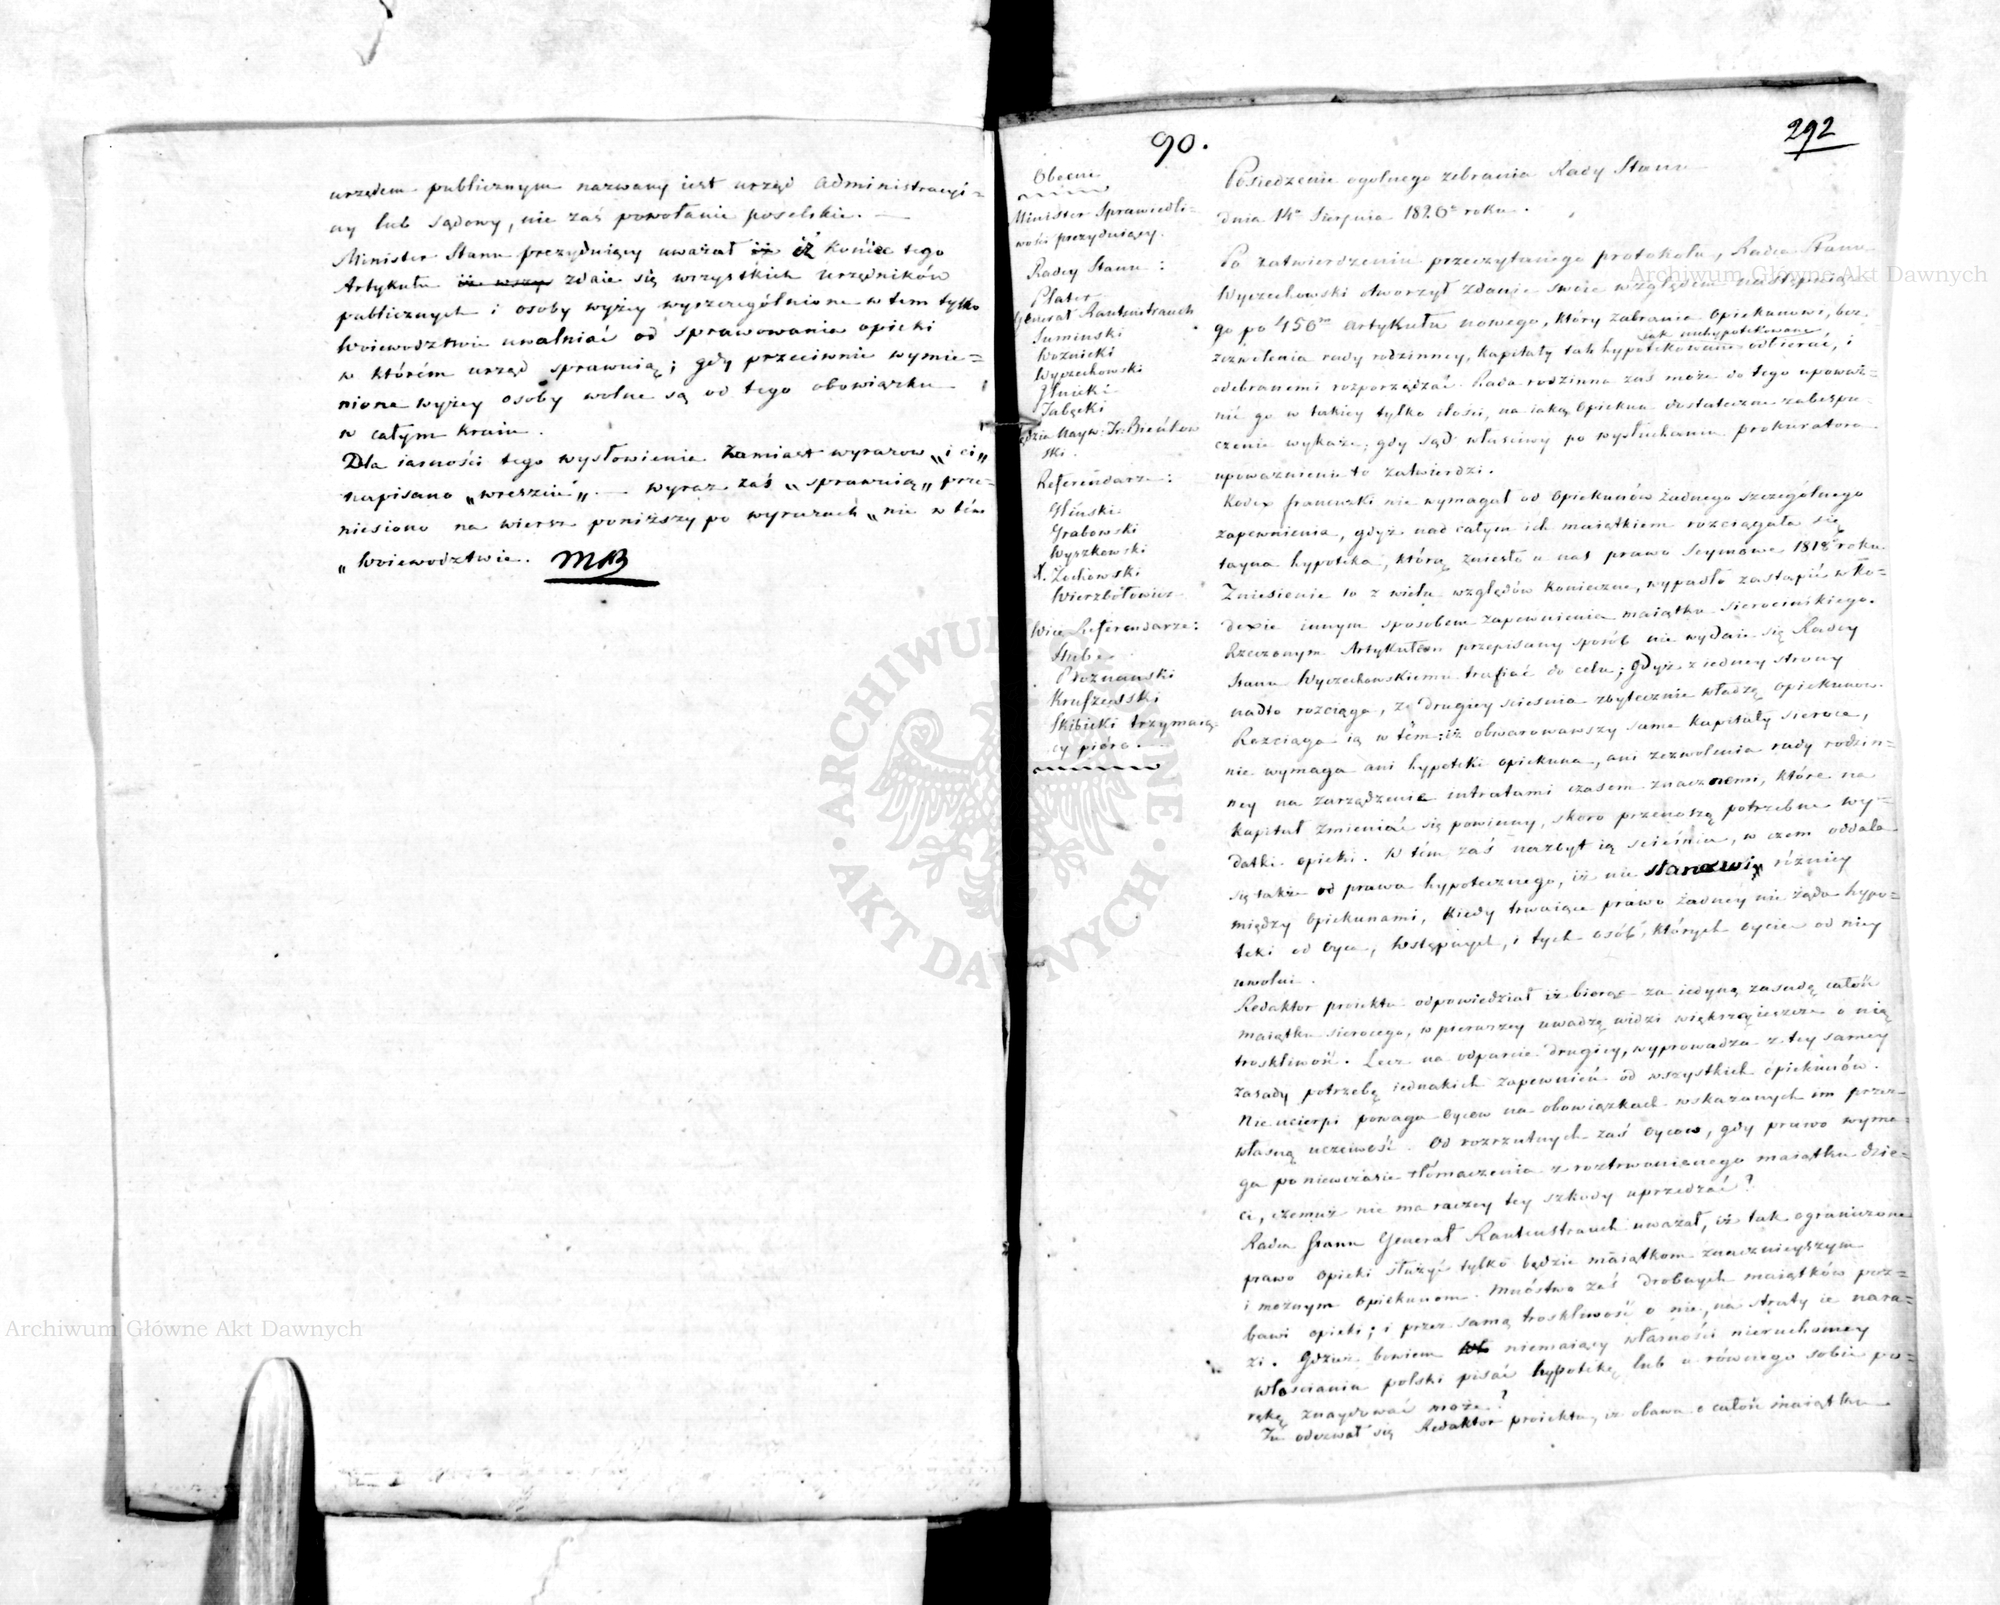 urzędem publicznym nazwany iest urząd administracyi=
ny lub sądowy, nie zaś powołanie poselskie. —
Minister Stanu prezyduiący uważał iż iż koniec tego
Artykułu iż wszy zdaie się wszystkich urzędników
publicznych i osoby wyżey wyszczególnione w tem tylko
Woiewództwie uwalniać od sprawowania opieki
w którém urząd sprawuią; gdy przeciwnie wymie=
nione wyżey osoby wolne są od tego obowiązku
w całym kraiu.
Dla iasności tego wysłowienia zamiast wyrazow „i ci„
napisano „wreszcie„ — wyraz zaś „sprawuią„ prze=
niesiono na wiersz poniższy po wyrazach „nie w tém
„Woiewództwie. MB
90.
292
Obecni
Minister Sprawiedli=
wości prezyduiący.
Radcy Stanu:
Plater
Generał Rautenstrauch
Suminski
Woznicki
Wyczechowski
Gliszcki
Zabęcki
Sędzia Nayw: Tr: Bieńkow
ski.
Referendarze:
Gliński
Grabowski
Wyszkowski
X. Żochowski
Wierzbołowicz
Wice Referendarze:
Hube
Poznanski
Kruszewski
Skibicki trzymaią=
cy pióro.
Posiedzenie ogolnego zebrania Rady Stanu
dnia 14o Sierpnia 1826o roku.
Po zatwierdzeniu przeczytanego protokołu, Radca Stanu
Wyczechowski otworzył zdanie swoie względem następuiące
go po 456m artykułu nowego, który zabrania Opiekunowi, bez
zezwolenia rady rodzinney, kapitały tak hypotekowane jak niehypotekowane, odbierać, i
odebranemi rozporządzać. Rada rodzinna zaś może do tego upoważ=
nić go w takiey tylko ilości, na iaką Opiekun dostateczne zabespie
czenie wykaże, gdy sąd właściwy po wysłuchaniu prokuratora
upoważnienie to zatwierdzi.
Kodex francuzki nie wymagał od Opiekunów żadnego szczególnego
zapewnienia, gdyż nad całym ich maiątkiem rozciągała się
tayna hypoteka, którą zniesło u nas prawo Seymowe 1818o roku.
Zniesienie to z wielu względów konieczne, wypadło zastąpić w Ko=
dexie innym sposobem zapewnienia maiątku sierocińskiego.
Rzeczonym Artykułem przepisany sposób nie wydaie się Radcy
Stanu Wyczechowskiemu trafiać do celu; gdyż z iedney strony
nadto rozciąga, z drugiey scieśnia zbytecznie władzę opiekunow.
Rozciąga ią w tém: iż obwarowawszy same kapitały sieroce,
nie wymaga ani hypoteki opiekuna, ani zezwolenia rady rodzin=
ney na zarządzenie intratami czasem znacznemi, które na
kapitał zmienić się powinny, skoro przenoszą potrzebne wy=
datki opieki. W tém zaś nazbyt ią scieśnia, w czem oddala
się także od prawa hypotecznego, iż nie stanowi różnicy
między Opiekunami, kiedy trwaiące prawo żadney nie żąda hypo=
teki od Oyca, Wstępnych, i tych osób, których Oyciec od niey
uwolni.
Redaktor proiektu odpowiedział iż biorąc za iedyną zasadę całość
maiątku sierocego, w pierwszey uwadze widzi większą ieszcze o nią
troskliwość. Lecz na odparcie drugiey, wyprowadza z tey samey
zasady potrzebę iednakich zapewnień od wszystkich opiekunów.
Nie ucierpi powaga Oycow na obowiązkach wskazanych im przez
własną uczciwość. Od rozrzutnych zaś Oyców, gdy prawo wyma=
ga poniewczasie tłomaczenia z roztrwonionego maiątku dzie=
ci, czemuż nie ma raczey tey szkody uprzedzać?
Radca Stanu Generał Rautenstrauch uważał, iż tak ograniczone
prawo opieki służyć tylko będzie maiątkom znacznieyszym
i możnym opiekunom. Mnóstwo zaś drobnych maiątków poz=
bawi opieki; i przez samą troskliwość o nie, na straty ie nara=
zi. Gdzież bowiem niemaiący własności nieruchomey
włoscianin polski pisać hypotekę lub u równego sobie po=
rękę znaydować może?
Tu odezwał się Redaktor proiektu, iż obawa o całość maiątku
Archiwum Główne Akt Dawnych
Archiwum Główne Akt Dawnych
ARCHIWUM GŁÓWNE · AKT DAWNYCH ·